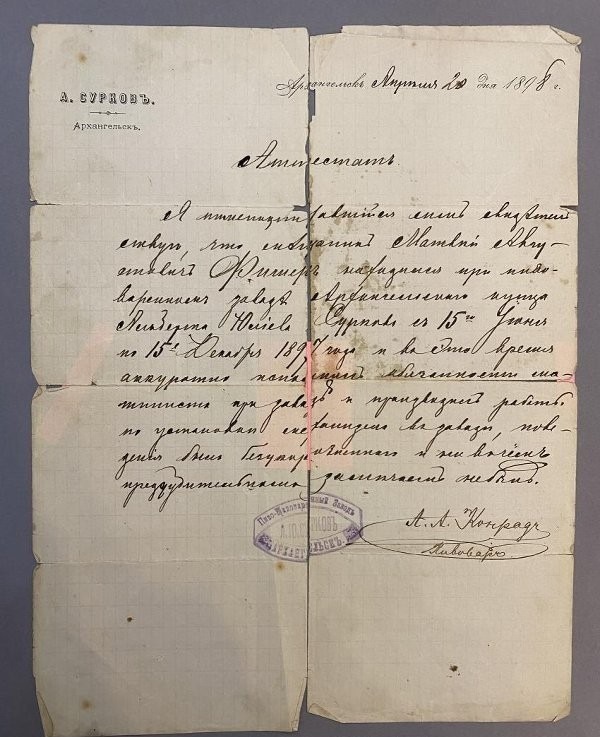 А. СУРКОВЪ.
Архангельскъ.
Архангельскъ Апрѣля 20 дня 1898 г.
Аттестатъ.
Я нижеподписавшійся симъ свидѣтель
ствую, что мѣщанинъ Матвѣй Авгу-
стовичъ Фишеръ находился при пиво-
варенномъ заводѣ Архангельскаго купца
Альберта Юліева Суркова съ 15го Іюня
по 15е Декабря 1897 года и въ это время
аккуратно исполнялъ обязанности ма-
шиниста при заводѣ и производилъ работы
по установкѣ въ заводѣ, пове-
денія былъ и ни въ чемъ
предосудительномъ замѣченъ не былъ.
Пиво-Медоваренный Заводъ
А. Ю. СУРКОВЪ
АРХАНГЕЛЬСКЪ.
А. А. Конрадъ
Пивоваръ.